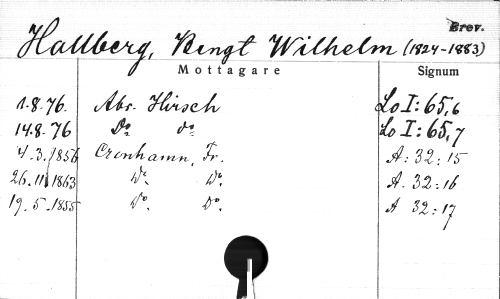 Brev.
Hallberg, Bengt Wilhelm (1824-1883)
Mottagare Signum
1.8.76. Abr. Hirsch Lo I: 65,6
14.8.76 Do do Lo I: 65,7
4.3.1856 Cronhamn, Fr. A: 32:15
26.11.1863 Do. Do. A. 32:16
19.5.1855 Do. Do. A 32:17